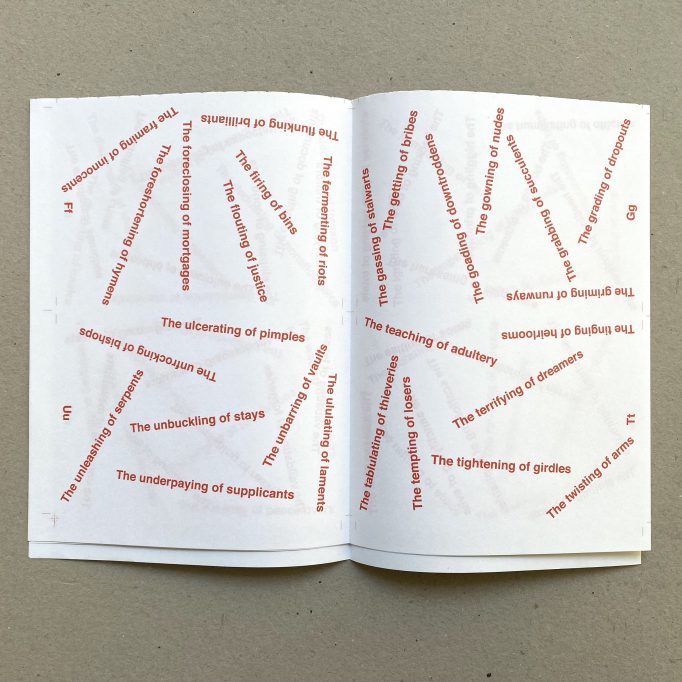 The framing of innocents
The flunking of brilliants
The foreclosing of mortgages
The foreshortening of hymens
The firing of bins
The flouting of justice
The fermenting of riots
Ff
The getting of bribes
The gassing of stalwarts
The goading of downtroddens
The gowning of nudes
The grabbing of succulents
The grading of dropouts
Gg
The griming of runways
The ulcerating of pimples
The unfrocking of bishops
The unleashing of serpents
The unbuckling of stays
The unbarring of vaults
The ululating of laments
The underpaying of supplicants
Un
The teaching of adultery
The tinging of heirlooms
The terrifying of dreamers
The tablulating of thieveries
The tempting of losers
The tightening of girdles
The twisting of arms
Tt